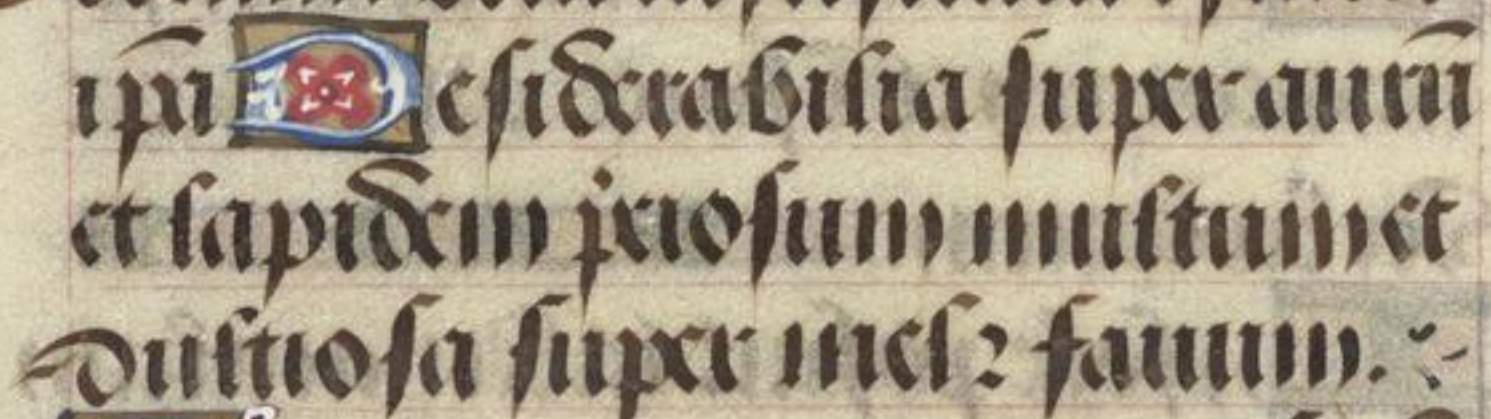 ip̄a Desiderabilia super aurū
et lapidem p̄ciosum multum et
dultiosa super mel ⁊ fauum.